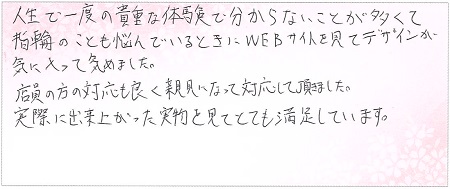 人生で一度の貴重な体験で分からないことが多くて
指輪のことも悩んでいるときにWEBサイトを見てデザインが
気に入って決めました。
店員の方の対応も良く親見になって対応して頂ました。
実際に出来上がった実物を見てとても満足しています。